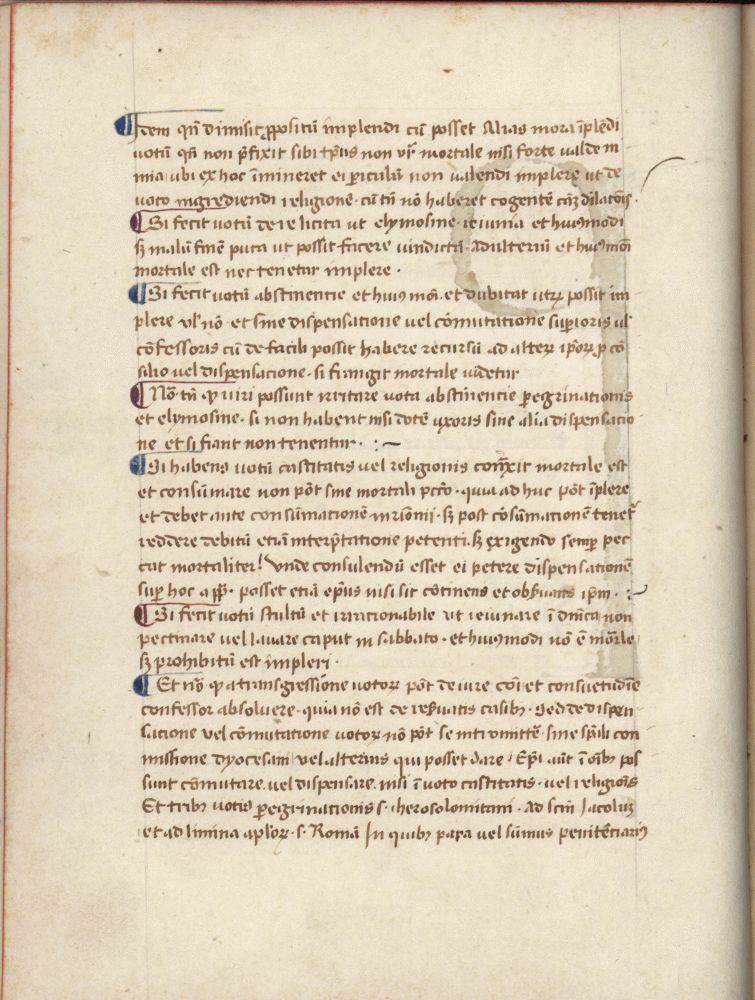 ¶ Idem qñ dimisit ꝓpositū implendi cū posset Alias mora īplēdi
votū qñ non p̄fixit sibi tp̄us non vr̄ mortale nisi forte valde ni
mia ubi ex hoc īmineret ei ꝑiculū non valendi implere ut de
voto ingrediendi religionē · cū tn̄ nō haberet cogentē cāȝ dilatōis ·
¶ Si fecit votū de re licita ut elymosine · ieiunia et huiꝰmodi
sȝ malū finē puta ut possit facere vindictā · adulteriū et huiꝰmōi
mortale est nec tenetur implere ·
¶ Si fecit votū abstinentie et huiꝰ mōi · et dubitat utꝝ possit im
plere vl̓ nō · et sine dispensatione vel cōmutatione suꝑioris vl̓
cōfessoris cū de facili possit habere recursū ad alteꝝ ip̄oꝝ ꝑ cō
silio vel dispensatione · si frangit mortale videtur
¶ Nō tn̄ ꝙ viri possunt irritare vota abstinencie ꝑegrinationis
et elymosine · si non habent nisi dotē uxoris sine alia dispensatio
ne et si fiant non tenentur · : ~
¶ Si habens votū castitatis vel religionis contꝰxit mortale est
et consūmare non pōt sine mortali pctō · quia ad huc pōt īplere
et debet ante consūmationē mr̄ionii · sȝ post cōsūmationē tenet᷑
reddere debitū etiā interp̄tatione petenti · sȝ exigendo semꝑ pec
cat mortaliter ! Vnde consulendū esset ei petere dispensationē
suꝑ hoc a pp̄ · posset etiā ep̄us nisi sit cōtinens et obs̓uans ip̄m · : ~
¶ Si fecit votū stultū et irrationabile ut ieiunare ī dn̄ica non
pectinare vel lavare caput in sabbato · et huiꝰmodi nō ē mōrle
sȝ prohibitū est impleri ·
¶ Et nō ꝙ a transgressione votoꝝ pōt de iure cōi et consuetudīe
confessor absoluere · quia nō est de res̓uatis casibꝰ · Sed de dispen
satione vel cōmutatione votoꝝ nō pōt se intromittē · sine sp̄ali con
missione dyocesani vel alterius qui posset dare · Ep̄i aūt ī oībꝰ pos
sunt cōmutare · vel dispensare · nisi ī voto castitatis · vel religiōis
Et tribꝰ votis ꝑegrinationis · s · iherosolomitani · ad scm̄ Iacobuȝ
et ad limina apl̓oꝝ · s · Romā In quibꝰ papa vel sūmus penitētiariꝰ